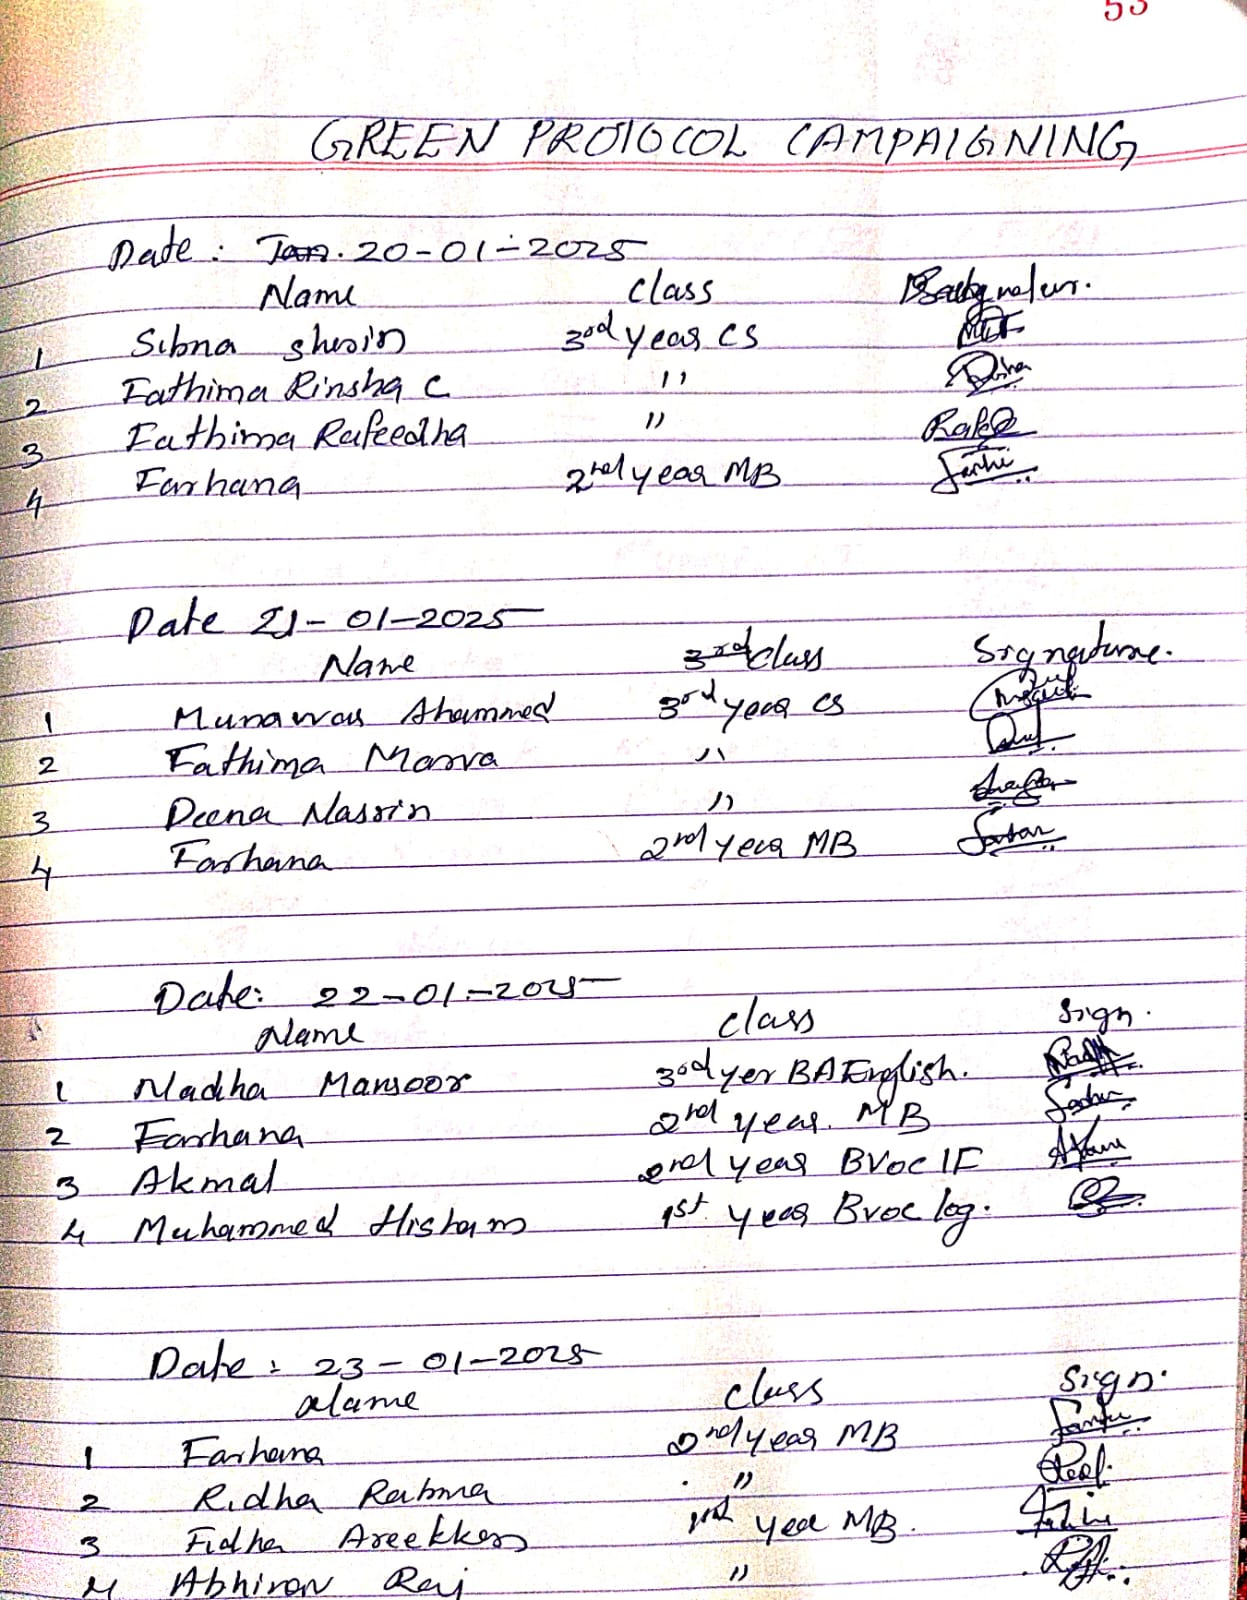 53
GREEN PROTOCOL CAMPAIGNING
Date : 20-01-2025
Name Class
1 Sibna sherin 3rd year CS
2 Fathima Rinsha C ”
3 Fathima Rafeedha ”
4 Farhana 2nd year MB
Date 21-01-2025
Name class Signature.
1 Munawar Ahammed 3rd year CS
2 Fathima Marva ”
3 Deena Nasrin ”
4 Farhana 2nd year MB
Date: 22-01-2025
Name class Sign.
1 Nadha Mansoor 3rd yer BA English.
2 Farhana 2nd year. MB
3 Akmal 2nd year BVoc IF
4 Muhammed Hisham 1st year Bvoc log.
Date : 23-01-2025
Name class Sign.
1 Farhana 2nd year MB
2 Ridha Rahma ”
3 Fidha Areekkers year MB.
4 Abhiron Raj ”